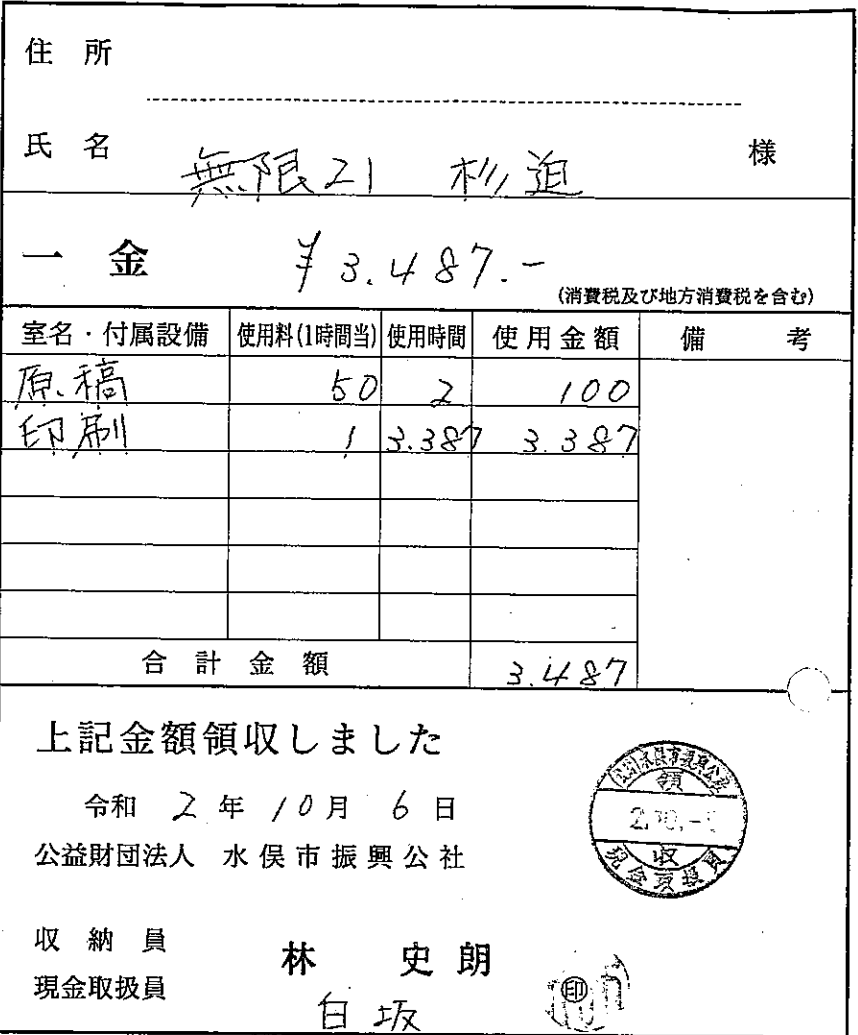 住所
氏名 無限21 杉迫 様
一金 ¥3.487.-
(消費税及び地方消費税を含む)
室名・付属設備 使用料(1時間当) 使用時間 使用金額 備考
原稿 50 2 100
印刷 1 3.387 3.387
合計金額 3.487
上記金額領収しました
令和 2年 10月 6日
公益財団法人 水俣市振興公社
領
収
収納員 林 史朗
現金取扱員 白坂
印